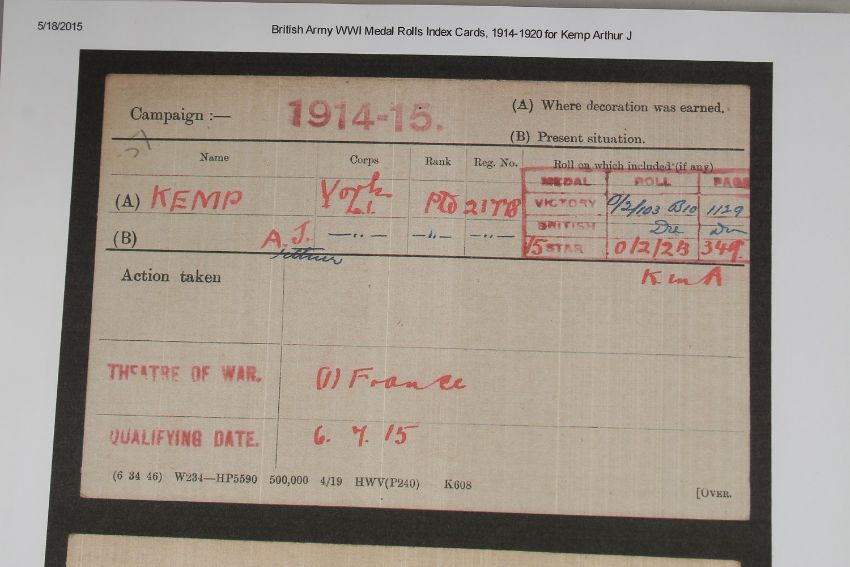 5/18/2015
British Army WWI Medal Rolls Index Cards, 1914-1920 for Kemp Arthur J
Campaign :— 1914-15.
(A) Where decoration was earned.
(B) Present situation.
Name Corps Rank Reg. No. Roll on which included (if any)
MEDAL ROLL PAGE
(A) KEMP York L.I. Pte 21778 VICTORY O/2/103 B10 1129
BRITISH Do Do
(B) A.J. —"— —"— —"— 15 STAR O/2/2B 349.
Arthur
K in A
Action taken
THEATRE OF WAR. (1) France
QUALIFYING DATE. 6. 7. 15
(6 34 46) W234—HP5590 500,000 4/19 HWV(P240) K608
[OVER.